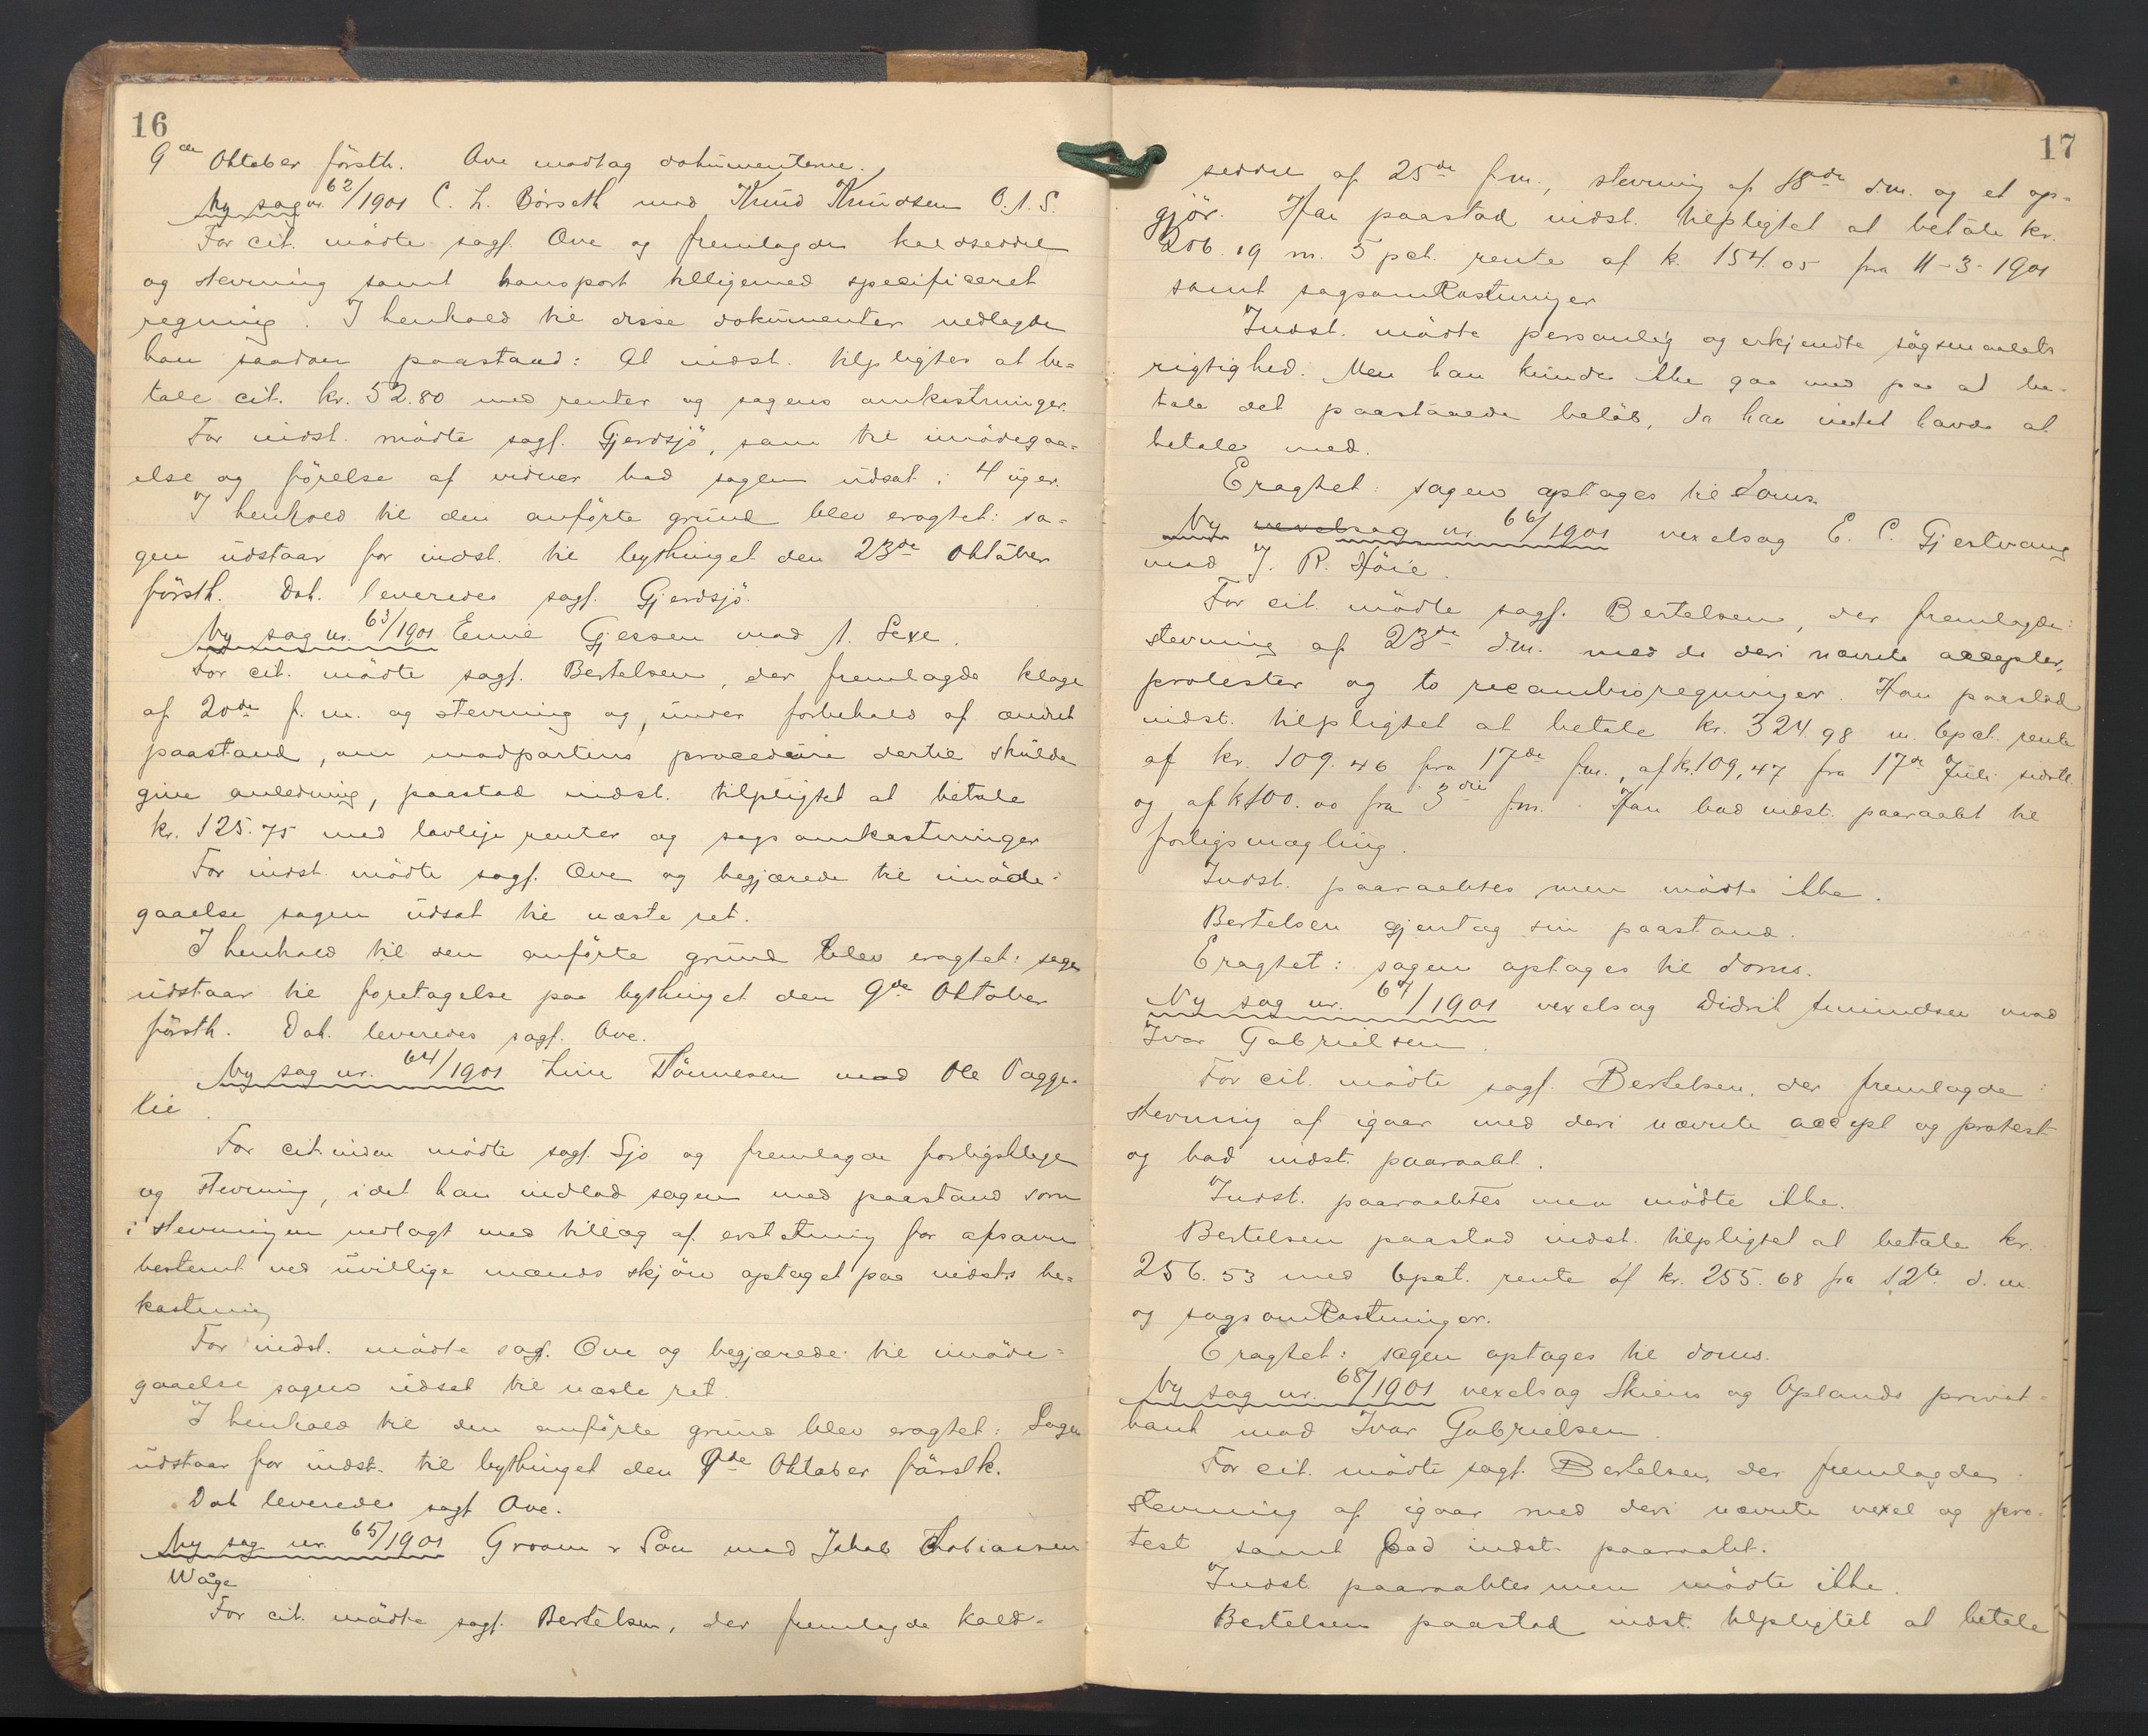 16
9de Oktober förstk. Ove modtog dokumenterne.
Ny sag nr. 62/1901 C. L. Börseth mod Knud Knudsen O.A.S.
For cit. mödte sagf. Ove og fremlagde kaldseddel
og stevning samt transport tilligemed specificeret
regning. I henhold til disse dokumenter nedlagde
han saadan paastand: At indst. tilpligtes at be=
tale cit. kr. 52.80 med renter og sagens omkostninger.
For indst. mödte sagf. Gjerdsjö, som til imödegaa=
else og förelse af vidner bad sagen udsat i 4 uger.
I henhold til den anförte grund blev eragtet: sa=
gen udstaar for indst. til bythinget den 23de Oktober
förstk. Dok. leveredes sagf. Gjerdsjö.
Ny sag nr. 63/1901 Emil Gjessen mod A. Sexe.
For cit. mödte sagf. Bertelsen, der fremlagde klage
af 20de f.m. og stevning og, under forbehold af ændret
paastand, om modpartens procedure dertil skulde
give anledning, paastod indst. tilpligtet at betale
kr. 125.75 med lovlige renter og sagsomkostninger
For indst. mödte sagf. Ove og begjærede til imöde=
gaaelse sagen udsat til næste ret.
I henhold til den anförte grund blev eragtet: sagen
udstaar til foretagelse paa bythinget den 9de Oktober
förstk. Dok. leveredes sagf. Ove.
Ny sag nr. 64/1901 Line Tönnesen mod Ole Vagge=
lie.
For citinden mödte sagf. Sjo og fremlagde forligsklage
og stevning, idet han indlod sagen med paastand som
i stevningen nedlagt med tillæg af erstatning for afsavn
bestemt ved uvillige mænds skjön optaget paa indsts be=
kostning
For indst. mödte sagf. Ove og begjærede til imöde=
gaaelse sagen udsat til næste ret.
I henhold til den anförte grund blev eragtet: Sagen
udstaar for indst. til bythinget den 9de Oktober förstk.
Dok leveredes sagf Ove.
Ny sag nr. 65/1901 Groom & Sön mod Jakob Tobiassen
Wåge
For cit. mödte sagf. Bertelsen, der fremlagde kald=
17
seddel af 25de f.m., stevning af 18de d.m. og et op=
gjör. Han paastod indst. tilpligtet at betale kr.
206.19 m. 5 pct. rente af k. 154.05 fra 11-3-1901
samt sagsomkostninger
Indst. mödte personlig og erkjendte sögsmaalets
rigtighed. Men han kunde ikke gaa med paa at be=
tale det paastaaede belöb, da han intet havde at
betale med.
Eragtet: sagen optages til doms.
Ny vexelsag nr. 66/1901 vexelsag E. C. Gjestvang
mod J. R. Höie.
For cit. mödte sagf. Bertelsen, der fremlagde:
stevning af 23de d.m. med de deri nævnte accepter,
protester og to recambioregninger. Han paastod
indst. tilpligtet at betale kr. 324.98 m. 6pct. rente
af kr. 109.46 fra 17de f.m., af kr. 109,47 fra 17de Juli sidstl
og af k 100.00 fra 3die f.m. Han bad indst. paaraabt til
forligsmægling.
Indst. paaraabtes men mödte ikke.
Bertelsen gjentog sin paastand.
Eragtet: sagen optages til doms.
Ny sag nr. 67/1901 vexelsag Didrik Amundsen mod
Ivar Gabrielsen.
For cit. mödte sagf. Bertelsen, der fremlagde:
stevning af igaar med deri nævnte accept og protest
og bad indst. paaraabt.
Indst. paaraabtes men mödte ikke.
Bertelsen paastod indst. tilpligtet at betale kr.
256.53 med 6pct. rente af kr. 255.68 fra 12te d.m.
og sagsomkostninger.
Eragtet: sagen optages til doms.
Ny sag nr. 68/1901 vexelsag Skiens og Oplands privat=
bank mod Ivar Gabrielsen.
For cit. mödte sagf. Bertelsen, der fremlagde:
stevning af igaar med deri nævnte vexel og pro=
test samt bad indst. paaraabt.
Indst. paaraabtes men mödte ikke.
Bertelsen paastod indst. tilpligtet at betale